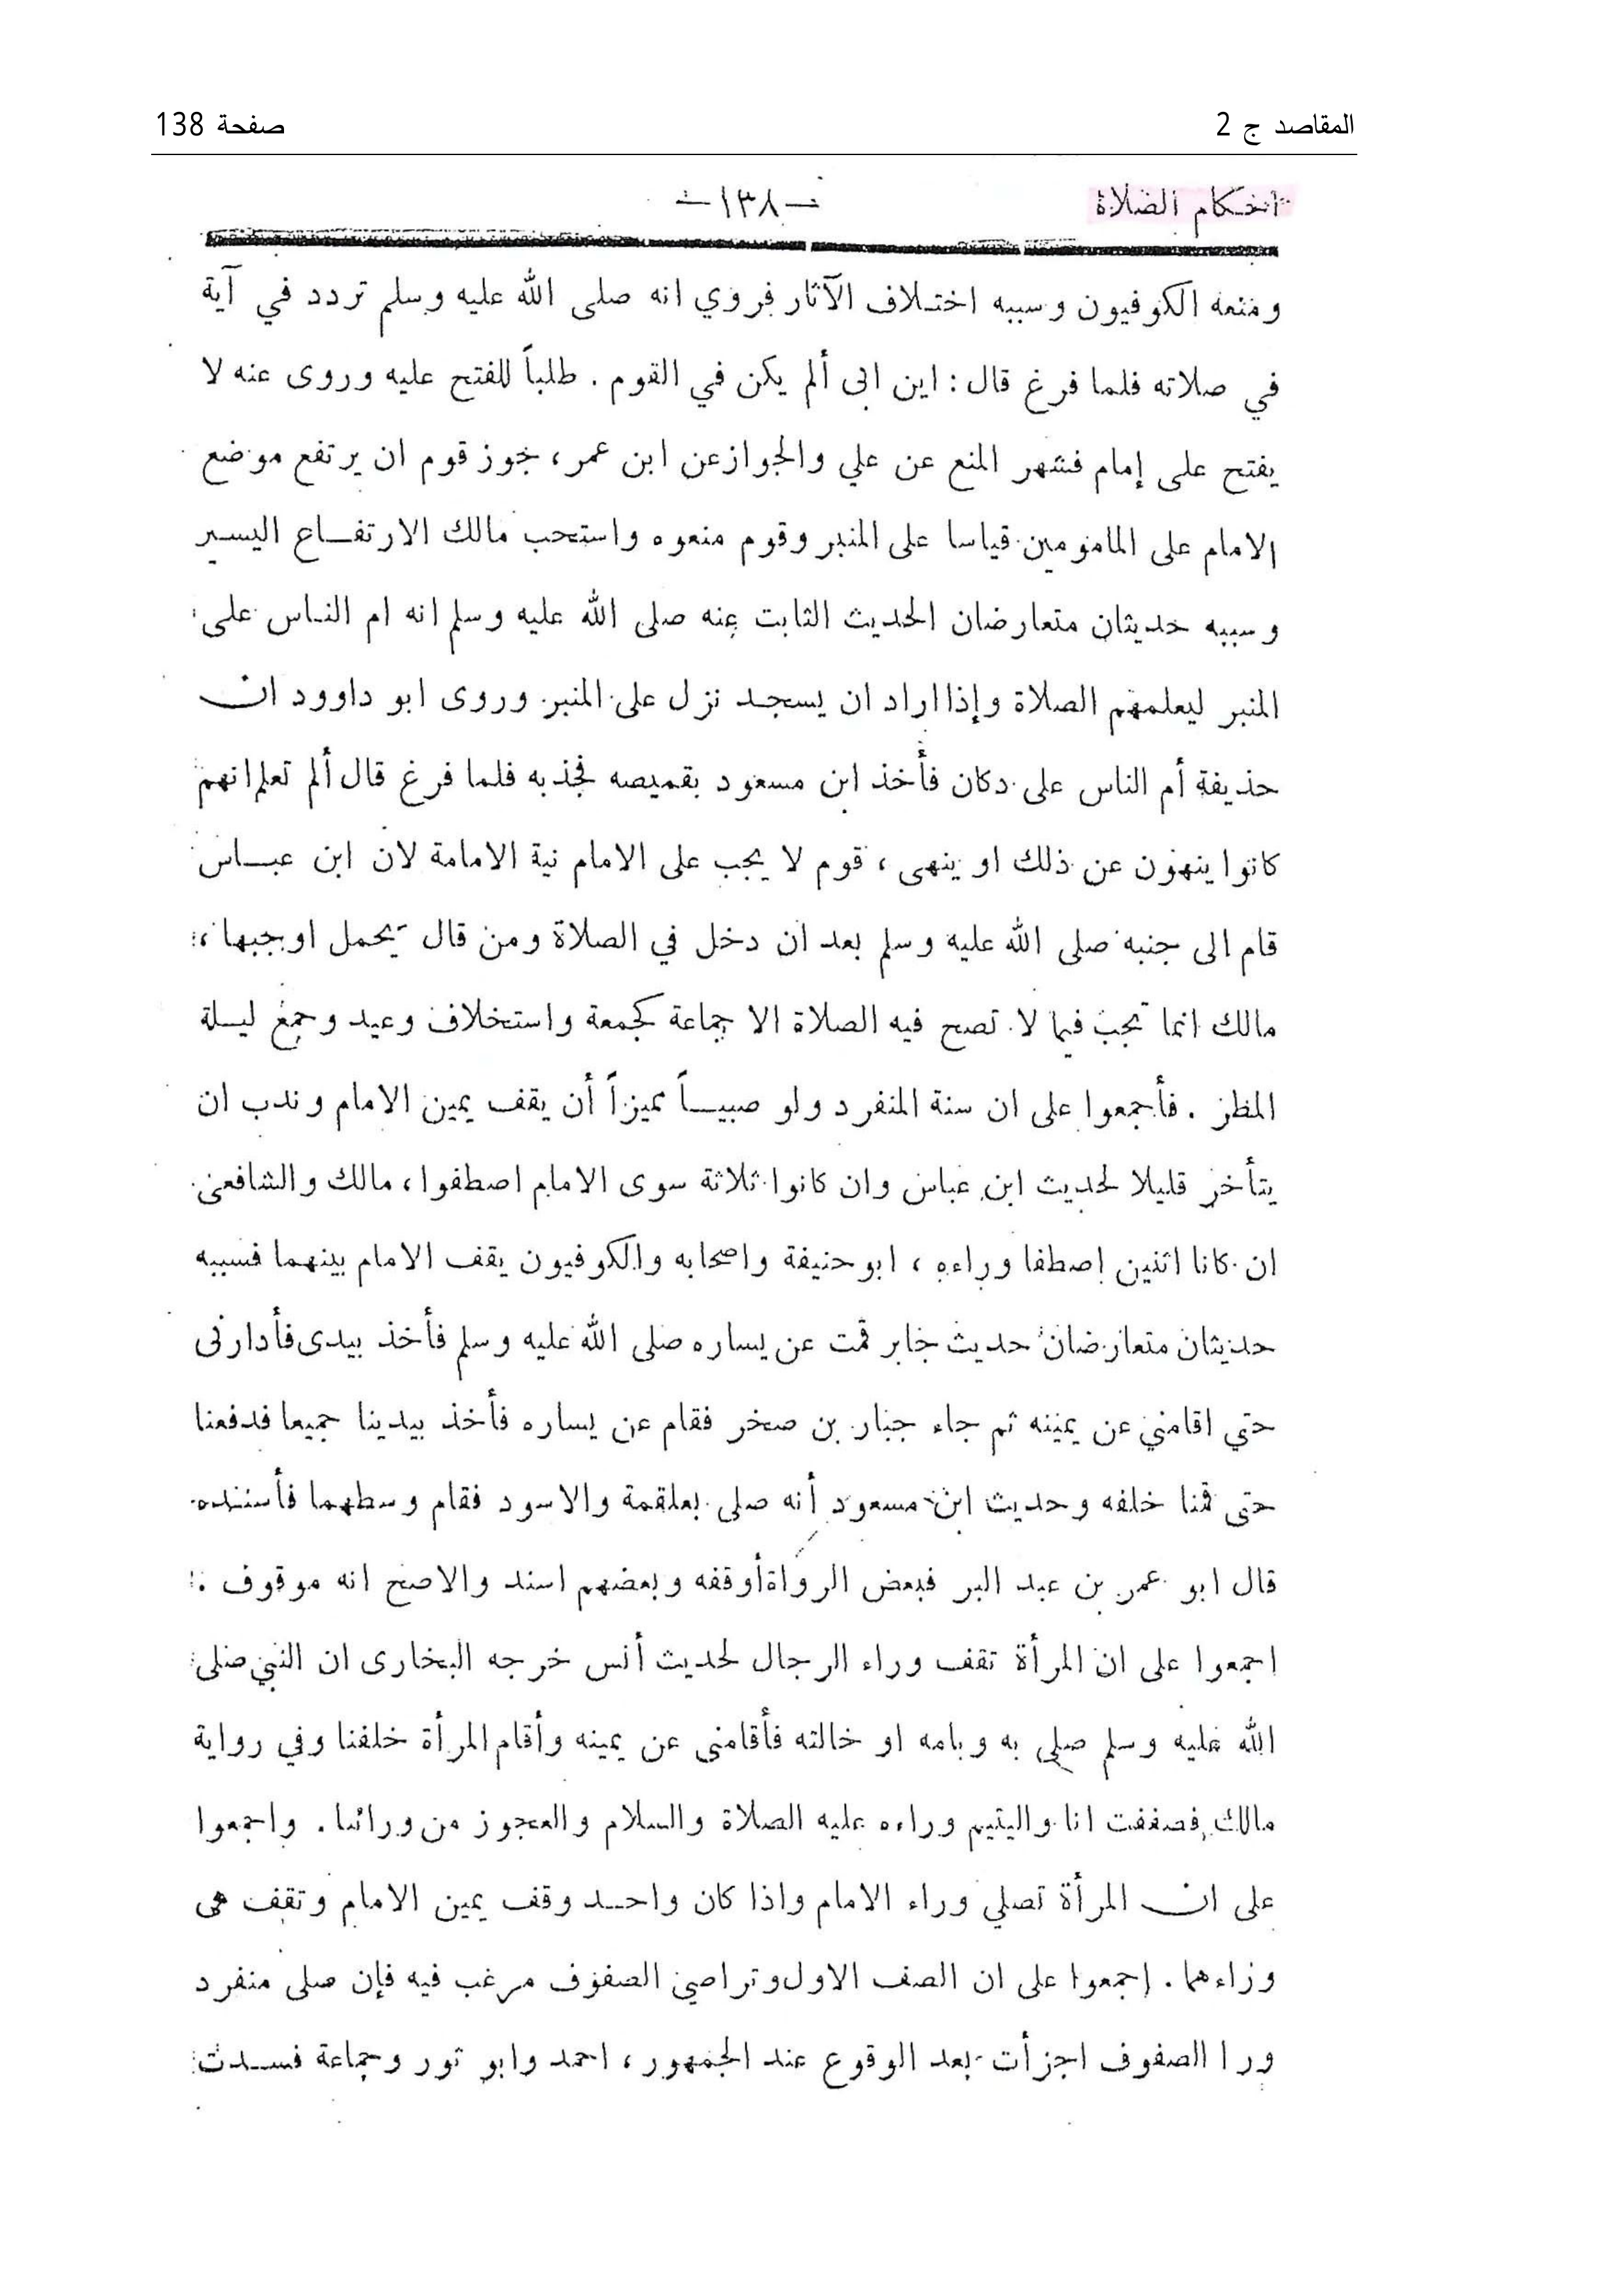 المقاصد ج 2
صفحة 138
احكام الصلاة
—١٣٨—
ومنعه الكوفيون وسببه اختلاف الآثار فروي انه صلى الله عليه وسلم تردد في آية
في صلاته فلما فرغ قال : اين ابى ألم يكن في القوم . طلباً للفتح عليه وروى عنه لا
يفتح على إمام فشهر المنع عن علي والجواز عن ابن عمر ، جوز قوم ان يرتفع موضع
الامام على المامومين قياسا على المنبر وقوم منعوه واستحب مالك الارتفاع اليسير
وسببه حديثان متعارضان الحديث الثابت عنه صلى الله عليه وسلم انه ام الناس على
المنبر ليعلمهم الصلاة وإذا اراد ان يسجد نزل على المنبر وروى ابو داوود ان
حذيفة أم الناس على دكان فأخذ ابن مسعود بقميصه فجذبه فلما فرغ قال ألم تعلم انهم
كانوا ينهون عن ذلك او ينهى ، قوم لا يجب على الامام نية الامامة لان ابن عباس
قام الى جنبه صلى الله عليه وسلم بعد ان دخل في الصلاة ومن قال يحمل اوجبها ،
مالك انما تجب فيما لا تصح فيه الصلاة الا جماعة كجمعة واستخلاف وعيد وجمع ليلة
المطر . فأجمعوا على ان سنة المنفرد ولو صبياً مميزاً أن يقف يمين الامام وندب ان
يتأخر قليلا لحديث ابن عباس وان كانوا ثلاثة سوى الامام اصطفوا ، مالك والشافعى
ان كانا اثنين إصطفا وراءه ، ابو حنيفة واصحابه والكوفيون يقف الامام بينهما فسببه
حديثان متعارضان حديث جابر قمت عن يساره صلى الله عليه وسلم فأخذ بيدى فأدارنى
حتي اقامني عن يمينه ثم جاء جبار بن صخر فقام عن يساره فأخذ بيدينا جميعا فدفعنا
حتى قمنا خلفه وحديث ابن مسعود أنه صلى بعلقمة والاسود فقام وسطهما فأسنده
قال ابو عمر بن عبد البر فبعض الرواة أوقفه وبعضهم اسند والاصح انه موقوف .
اجمعوا على ان المرأة تقف وراء الرجال لحديث أنس خرجه البخارى ان النبي صلى
الله عليه وسلم صلى به وبامه او خالته فأقامنى عن يمينه وأقام المرأة خلفنا وفي رواية
مالك فصففت انا واليتيم وراءه عليه الصلاة والسلام والعجوز من ورائنا . واجمعوا
على ان المرأة تصلي وراء الامام واذا كان واحد وقف يمين الامام وتقف هى
وراءهما . إجمعوا على ان الصف الاول وتراصي الصفوف مرغب فيه فإن صلى منفرد
ورا الصفوف اجزأت بعد الوقوع عند الجمهور ، احمد وابو ثور وجماعة فسدت